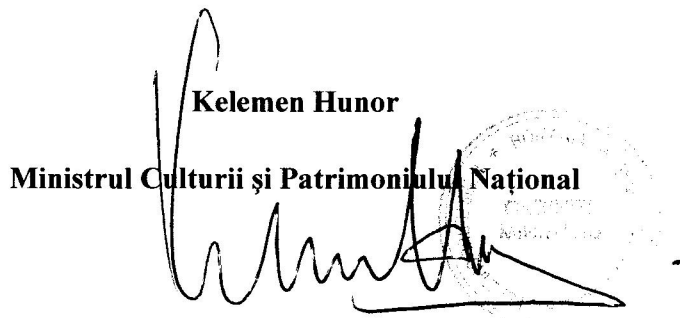 Kelemen Hunor
Ministrul Culturii şi Patrimoniului Naţional